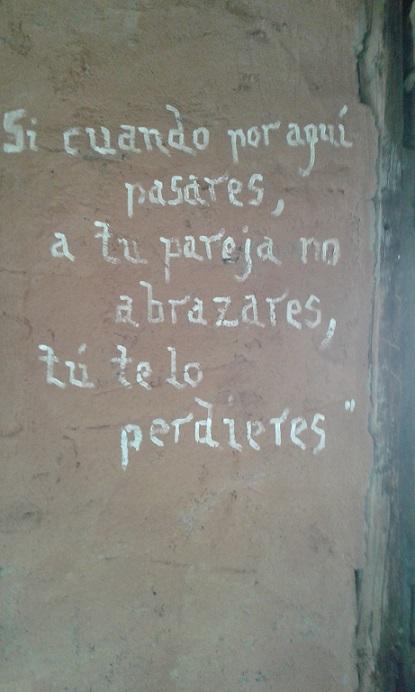 Si cuando por aquí
pasares,
a tu pareja no
abrazares,
tú te lo
perdieres"